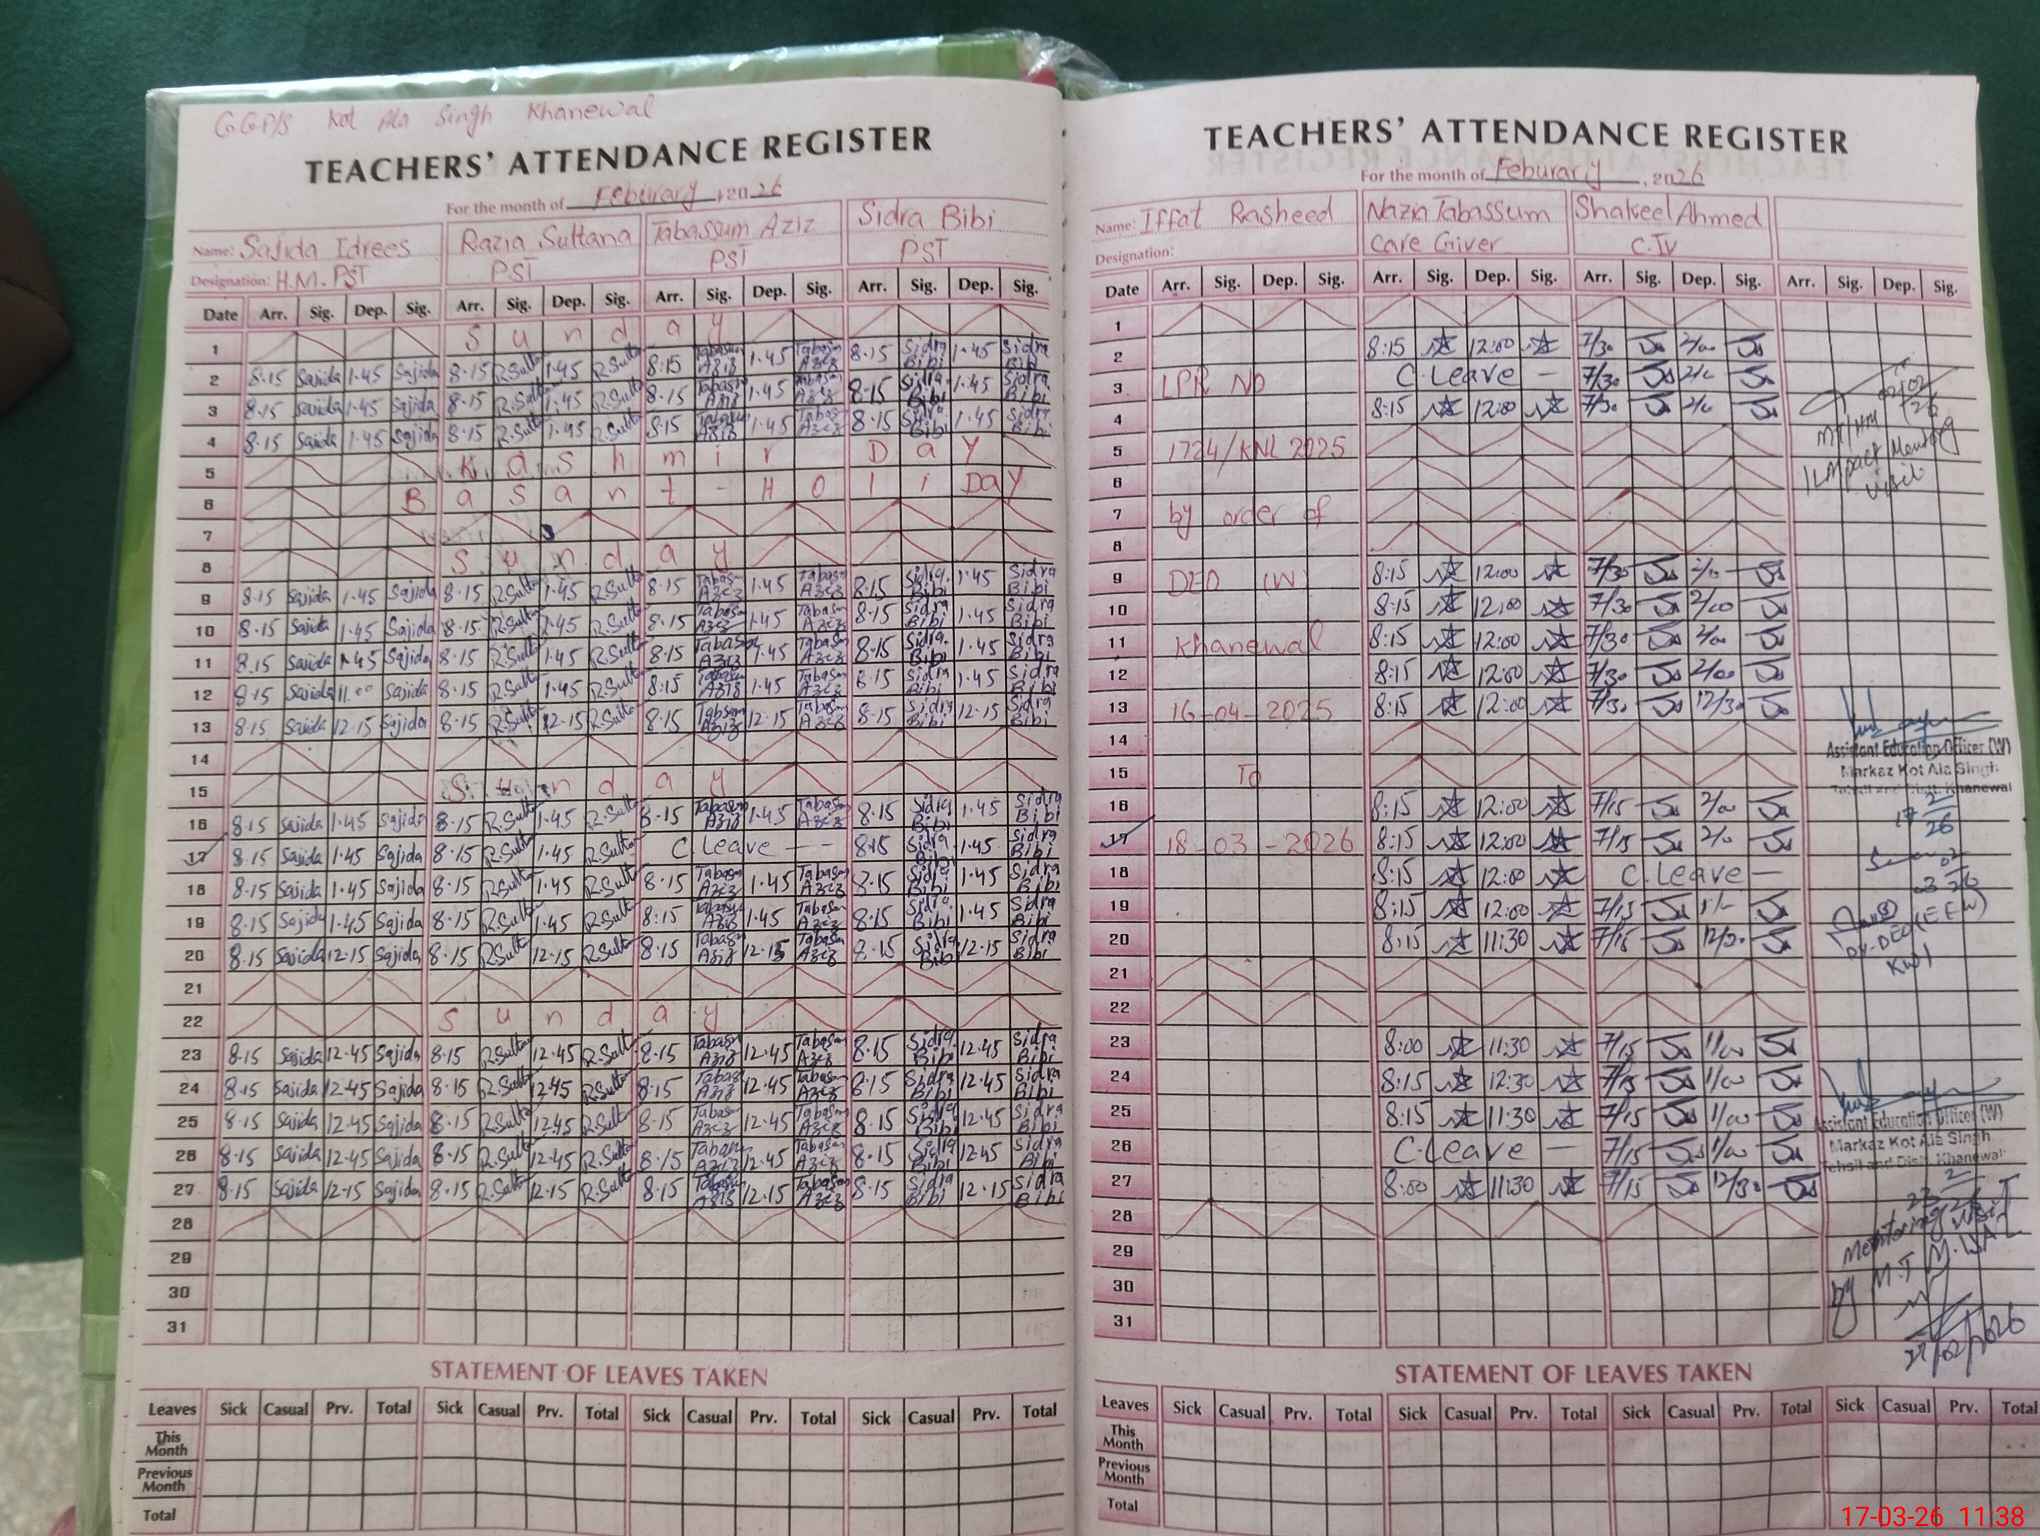 GGP/S Kot Ala Singh Khanewal
TEACHERS' ATTENDANCE REGISTER
For the month of Feburary, 2026
Name: Sajida Idrees Razia Sultana Tabassum Aziz Sidra Bibi
Designation: H.M. PST PST PST PST
Date Arr. Sig. Dep. Sig. Arr. Sig. Dep. Sig. Arr. Sig. Dep. Sig. Arr. Sig. Dep. Sig.
1 Sunday
2 8.15 Sajida 1.45 Sajida 8.15 R.Sultan 1.45 R.Sultan 8.15 Tabasum Aziz 1.45 Tabasum Aziz 8.15 Sidra Bibi 1.45 Sidra Bibi
3 8.15 Sajida 1.45 Sajida 8.15 R.Sultan 1.45 R.Sultan 8.15 Tabasum Aziz 1.45 Tabasum Aziz 8.15 Sidra Bibi 1.45 Sidra Bibi
4 8.15 Sajida 1.45 Sajida 8.15 R.Sultan 1.45 R.Sultan 8.15 Tabasum Aziz 1.45 Tabasum Aziz 8.15 Sidra Bibi 1.45 Sidra Bibi
5 Kashmir Day
6 Basant - HOliDay
7
8 Sunday
9 8.15 Sajida 1.45 Sajida 8.15 R.Sultan 1.45 R.Sultan 8.15 Tabasum Aziz 1.45 Tabasum Aziz 8.15 Sidra Bibi 1.45 Sidra Bibi
10 8.15 Sajida 1.45 Sajida 8.15 R.Sultan 1.45 R.Sultan 8.15 Tabasum Aziz 1.45 Tabasum Aziz 8.15 Sidra Bibi 1.45 Sidra Bibi
11 8.15 Sajida 1.45 Sajida 8.15 R.Sultan 1.45 R.Sultan 8.15 Tabasum Aziz 1.45 Tabasum Aziz 8.15 Sidra Bibi 1.45 Sidra Bibi
12 8.15 Sajida 11.00 Sajida 8.15 R.Sultan 1.45 R.Sultan 8:15 Tabasum Aziz 1.45 Tabasum Aziz 8.15 Sidra Bibi 1.45 Sidra Bibi
13 8.15 Sajida 12.15 Sajida 8.15 R.Sultan 12.15 R.Sultan 8.15 Tabasum Aziz 12.15 Tabasum Aziz 8.15 Sidra Bibi 12.15 Sidra Bibi
14
15 Sunday
16 8.15 Sajida 1.45 Sajida 8.15 R.Sultan 1.45 R.Sultan 8.15 Tabasum Aziz 1.45 Tabasum Aziz 8.15 Sidra Bibi 1.45 Sidra Bibi
17 8.15 Sajida 1.45 Sajida 8.15 R.Sultan 1.45 R.Sultan C.Leave -- 8.15 Sidra Bibi 1.45 Sidra Bibi
18 8.15 Sajida 1.45 Sajida 8.15 R.Sultan 1.45 R.Sultan 8.15 Tabasum Aziz 1.45 Tabasum Aziz 8.15 Sidra Bibi 1.45 Sidra Bibi
19 8.15 Sajida 1.45 Sajida 8.15 R.Sultan 1.45 R.Sultan 8:15 Tabasum Aziz 1.45 Tabasum Aziz 8.15 Sidra Bibi 1.45 Sidra Bibi
20 8.15 Sajida 12.15 Sajida 8.15 R.Sultan 12.15 R.Sultan 8.15 Tabasum Aziz 12.15 Tabasum Aziz 8.15 Sidra Bibi 12.15 Sidra Bibi
21
22 Sunday
23 8.15 Sajida 12.45 Sajida 8.15 R.Sultan 12.45 R.Sultan 8.15 Tabasum Aziz 12.45 Tabasum Aziz 8.15 Sidra Bibi 12.45 Sidra Bibi
24 8.15 Sajida 12.45 Sajida 8.15 R.Sultan 12.45 R.Sultan 8.15 Tabasum Aziz 12.45 Tabasum Aziz 8.15 Sidra Bibi 12.45 Sidra Bibi
25 8.15 Sajida 12.45 Sajida 8.15 R.Sultan 12.45 R.Sultan 8.15 Tabasum Aziz 12.45 Tabasum Aziz 8.15 Sidra Bibi 12.45 Sidra Bibi
26 8.15 Sajida 12.45 Sajida 8.15 R.Sultan 12.45 R.Sultan 8.15 Tabasum Aziz 12.45 Tabasum Aziz 8.15 Sidra Bibi 12.45 Sidra Bibi
27 8.15 Sajida 12.15 Sajida 8.15 R.Sultan 12.15 R.Sultan 8.15 Tabasum Aziz 12.15 Tabasum Aziz 8.15 Sidra Bibi 12.15 Sidra Bibi
28
29
30
31
STATEMENT OF LEAVES TAKEN
Leaves Sick Casual Prv. Total Sick Casual Prv. Total Sick Casual Prv. Total Sick Casual Prv. Total
This Month
Previous Month
Total
TEACHERS' ATTENDANCE REGISTER
For the month of Feburary, 2026
Name: Iffat Rasheed Nazia Tabassum Shakeel Ahmed
Designation: Care Giver C.IV
Date Arr. Sig. Dep. Sig. Arr. Sig. Dep. Sig. Arr. Sig. Dep. Sig. Arr. Sig. Dep. Sig.
1
2 8:15 12:00 7/30 2/00
3 LPR NO C.Leave - 7/30 2/0
4 8:15 12:00 7/30 2/0
5 1724/KNL 2025
6
7 by order of
8
9 DEO (W) 8:15 12:00 7/30 2/0
10 8:15 12:00 7/30 2/00
11 Khanewal 8:15 12:00 7/30 2/00
12 8:15 12:00 7/30 2/00
13 16-04-2025 8:15 12:00 7/30 12/30
14
15 To
16 8:15 12:00 7/15 2/00
17 18-03-2026 8:15 12:00 7/15 2/0
18 8:15 12:00 C.Leave -
19 8:15 12:00 7/15 1/-
20 8:15 11:30 7/15 12/30
21
22
23 8:00 11:30 7/15 1/00
24 8:15 12:30 7/15 1/00
25 8:15 11:30 7/15 1/00
26 C.Leave - 7/15 1/00
27 8:00 11:30 7/15 12/30
28
29
30
31
02/02/26
MT/HM
Visit
Assistant Education Officer (W)
Markaz Kot Ala Singh
Tehsil and Distt. Khanewal
17 2/26
03 02/26
DY-DEO (EEW)
KWl
Assistant Education Officer (W)
Markaz Kot Ala Singh
Tehsil and Distt. Khanewal
23 2/26
Mentoring Visit
by M.T
27/02/2026
STATEMENT OF LEAVES TAKEN
Leaves Sick Casual Prv. Total Sick Casual Prv. Total Sick Casual Prv. Total Sick Casual Prv. Total
This Month
Previous Month
Total
17-03-26 11:38